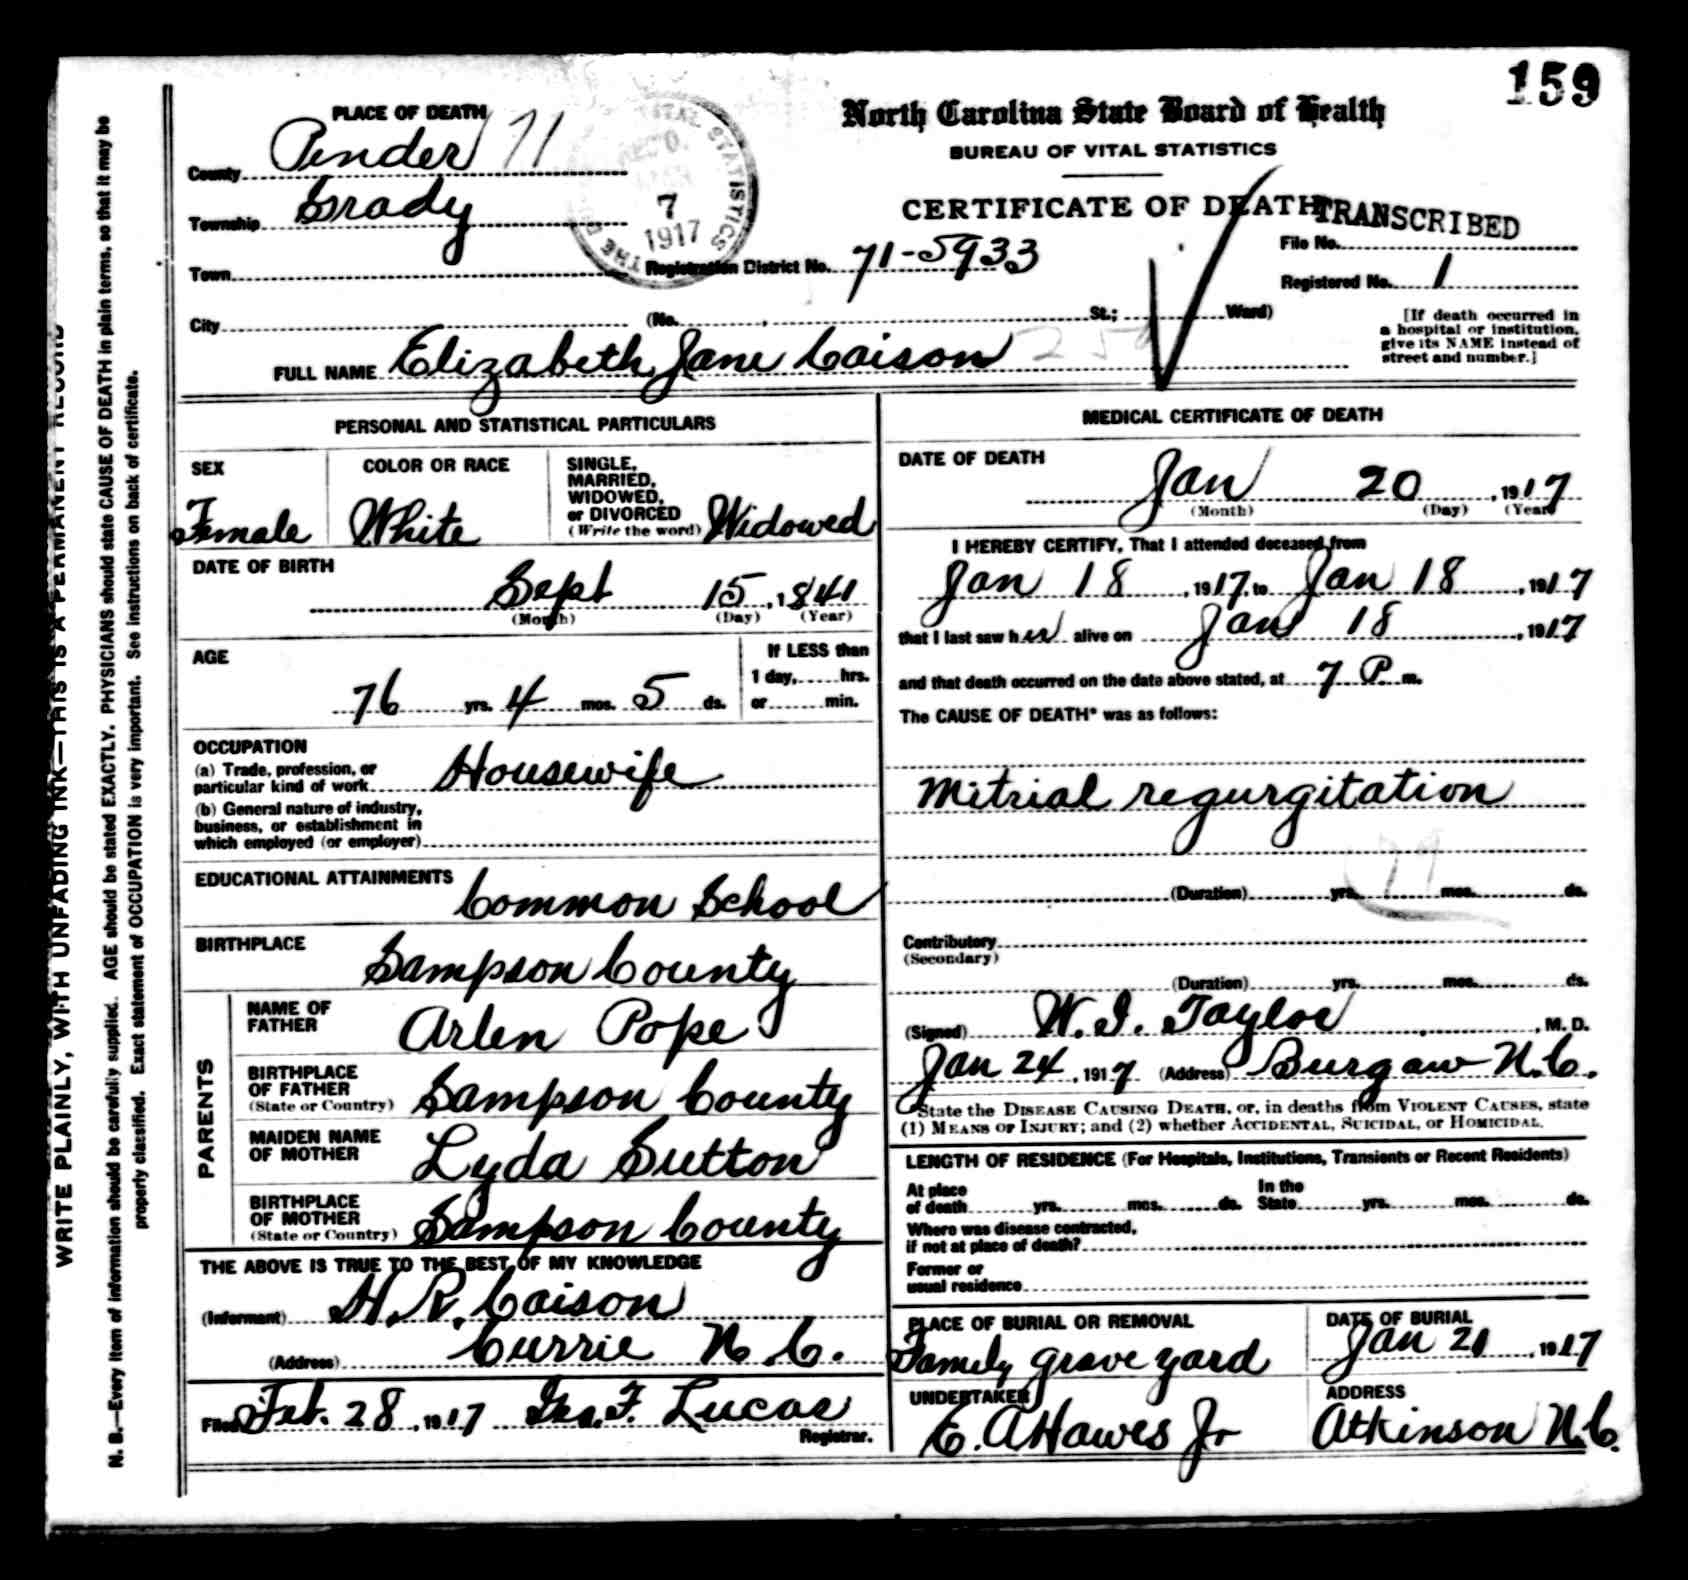 159
North Carolina State Board of Health
BUREAU OF VITAL STATISTICS
CERTIFICATE OF DEATH
TRANSCRIBED
PLACE OF DEATH
County Pender 71
Township Grady
Town
City (No. St.; Ward)
VITAL STATISTICS
7
1917
Registration District No. 71-5933
File No.
Registered No. 1
[If death occurred in
a hospital or institution,
give its NAME instead of
street and number.]
FULL NAME Elizabeth Jane Caison
PERSONAL AND STATISTICAL PARTICULARS
SEX
Female
COLOR OR RACE
White
SINGLE,
MARRIED,
WIDOWED,
or DIVORCED
(Write the word) Widowed
DATE OF BIRTH
Sept 15, 1841
(Month) (Day) (Year)
AGE
76 yrs. 4 mos. 5 ds.
If LESS than
1 day, hrs.
or min.
OCCUPATION
(a) Trade, profession, or
particular kind of work Housewife
(b) General nature of industry,
business, or establishment in
which employed (or employer)
EDUCATIONAL ATTAINMENTS
Common School
BIRTHPLACE
Sampson County
PARENTS
NAME OF
FATHER
Arlen Pope
BIRTHPLACE
OF FATHER
(State or Country) Sampson County
MAIDEN NAME
OF MOTHER
Lyda Sutton
BIRTHPLACE
OF MOTHER
(State or Country) Sampson County
THE ABOVE IS TRUE TO THE BEST OF MY KNOWLEDGE
(Informant) H. R. Caison
(Address) Currie N. C.
Filed Feb. 28, 1917 Geo. F. Lucas
Registrar.
MEDICAL CERTIFICATE OF DEATH
DATE OF DEATH
Jan 20, 1917
(Month) (Day) (Year)
I HEREBY CERTIFY, That I attended deceased from
Jan 18, 1917, to Jan 18, 1917
that I last saw her alive on Jan 18, 1917
and that death occurred on the date above stated, at 7 P. m.
The CAUSE OF DEATH* was as follows:
Mitrial regurgitation
79
(Duration) yrs. mos. ds.
Contributory
(Secondary)
(Duration) yrs. mos. ds.
(Signed) W. I. Taylor, M. D.
Jan 24, 1917 (Address) Burgaw N.C.
State the DISEASE CAUSING DEATH, or, in deaths from VIOLENT CAUSES, state
(1) MEANS OF INJURY; and (2) whether ACCIDENTAL, SUICIDAL, or HOMICIDAL.
LENGTH OF RESIDENCE (For Hospitals, Institutions, Transients or Recent Residents)
At place
of death yrs. mos. ds.
In the
State yrs. mos. ds.
Where was disease contracted,
if not at place of death?
Former or
usual residence
PLACE OF BURIAL OR REMOVAL
Family grave yard
DATE OF BURIAL
Jan 21, 1917
UNDERTAKER
E. A Hawes Jr
ADDRESS
Atkinson N.C.
WRITE PLAINLY, WITH UNFADING INK—THIS IS A PERMANENT RECORD
N. B.—Every item of information should be carefully supplied. AGE should be stated EXACTLY. PHYSICIANS should state CAUSE OF DEATH in plain terms, so that it may be
properly classified. Exact statement of OCCUPATION is very important. See instructions on back of certificate.